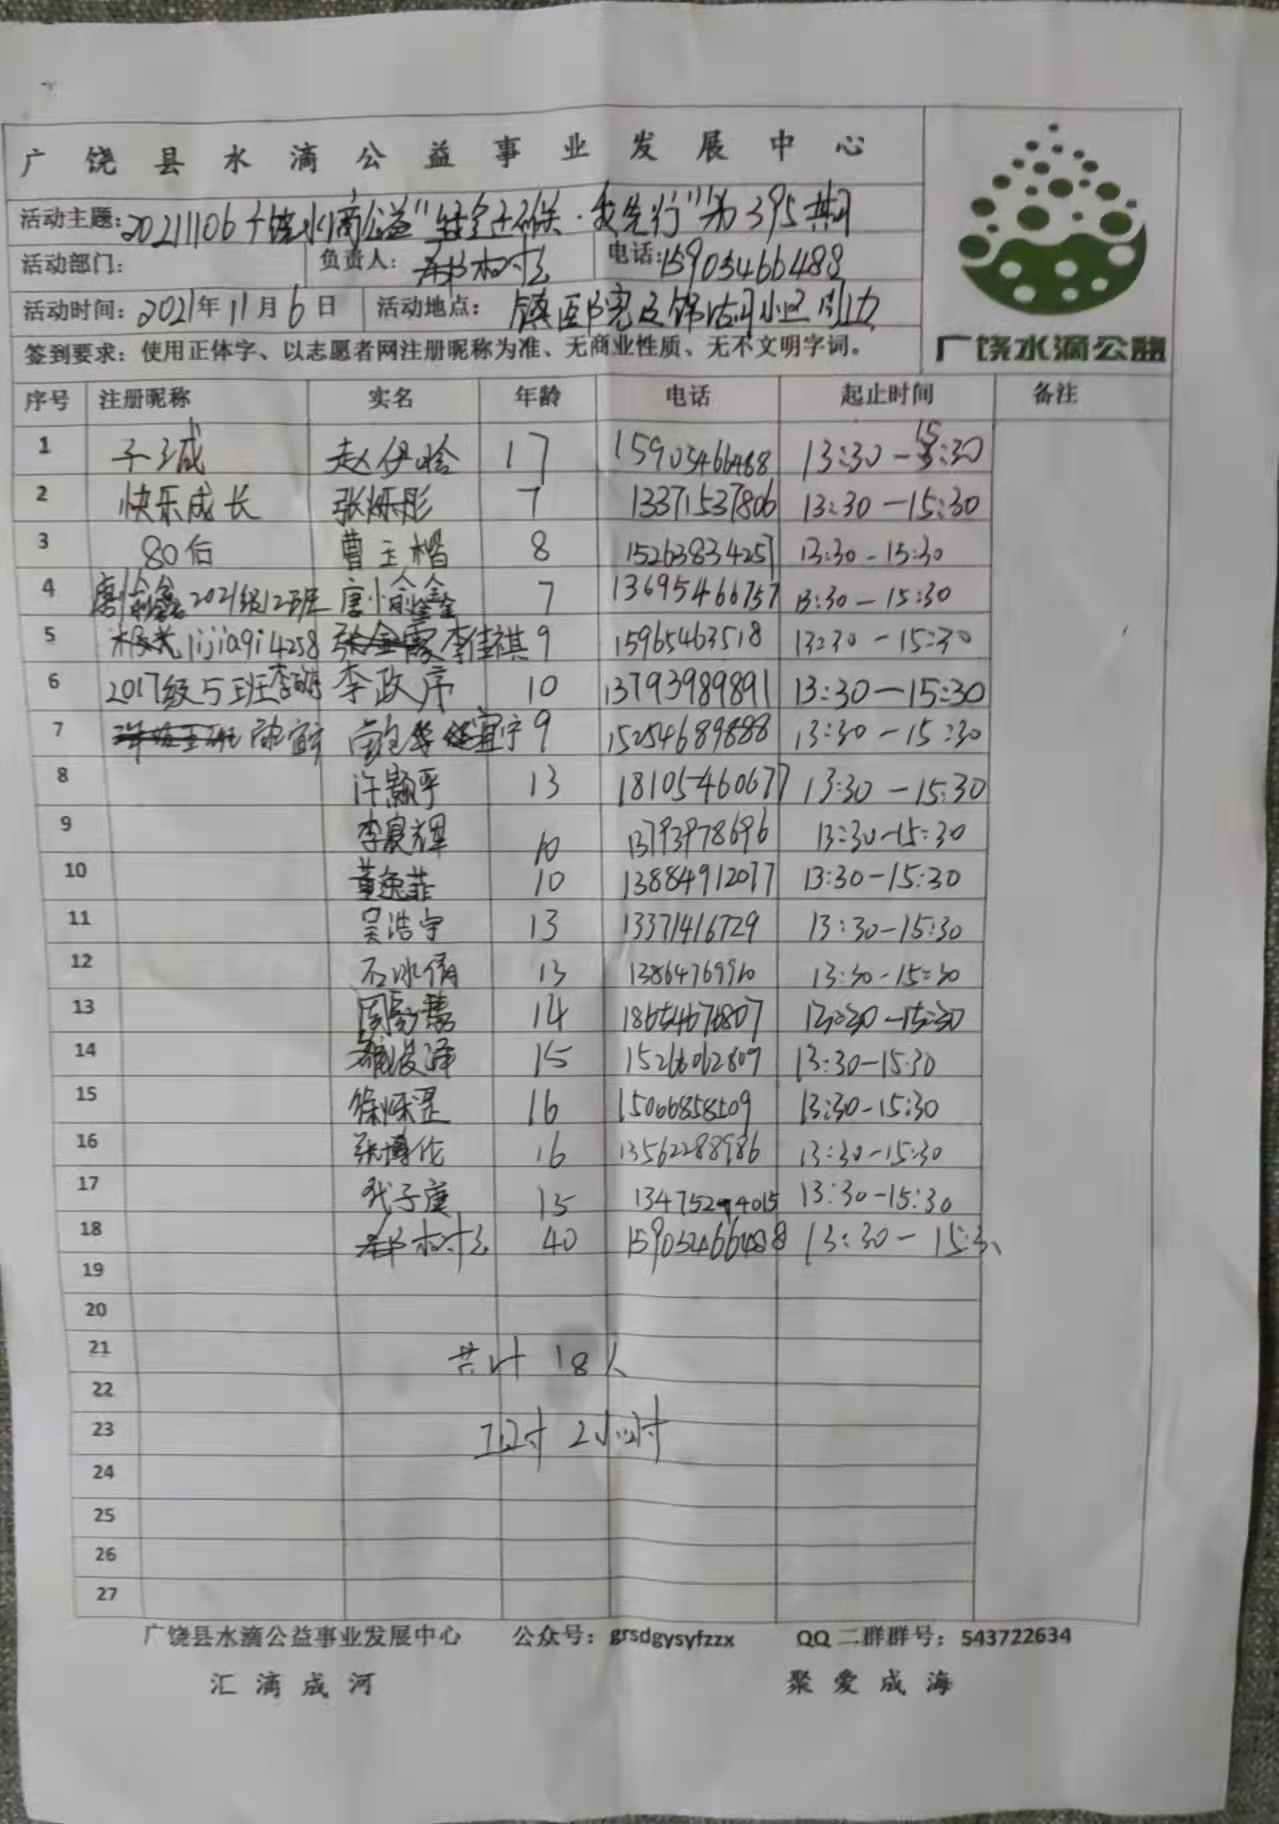 广饶县水滴公益事业发展中心
活动主题:20211106广饶水滴公益" 我先行"第395期
活动部门: 负责人: 电话:15905466488
活动时间:2021年11月6日 活动地点: 镇医院及锦湖小区周边
签到要求:使用正体字、以志愿者网注册昵称为准、无商业性质、无不文明字词。
广饶水滴公益
序号 注册昵称 实名 年龄 电话 起止时间 备注
1 赵伊晗 17 15905466488 13:30-15:30
2 快乐成长 张烁彤 7 13371537806 13:30-15:30
3 80后 曹主楷 8 15263834257 13:30-15:30
4 2021级12班 唐愉鑫 7 13695466757 13:30-15:30
5 lijiaqi4258 李佳祺 9 15965463518 13:30-15:30
6 2017级5班 李政序 10 13793989891 13:30-15:30
7 宜宁 9 15254689888 13:30-15:30
8 许颢严 13 18105460677 13:30-15:30
9 李晨辉 10 13793978696 13:30-15:30
10 董逸菲 10 13884912077 13:30-15:30
11 吴浩宇 13 13371416729 13:30-15:30
12 石冰倩 13 13864769910 13:30-15:30
13 14 18654676807 13:30-15:30
14 15 15266062809 13:30-15:30
15 16 15066858509 13:30-15:30
16 张博伦 16 13562288986 13:30-15:30
17 15 13475294015 13:30-15:30
18 40 15905466488 13:30-15:30
19
20
21 共计18人
22
23 工时2小时
24
25
26
27
广饶县水滴公益事业发展中心 公众号:grsdgysyfzzx QQ二群群号:543722634
汇滴成河 聚爱成海